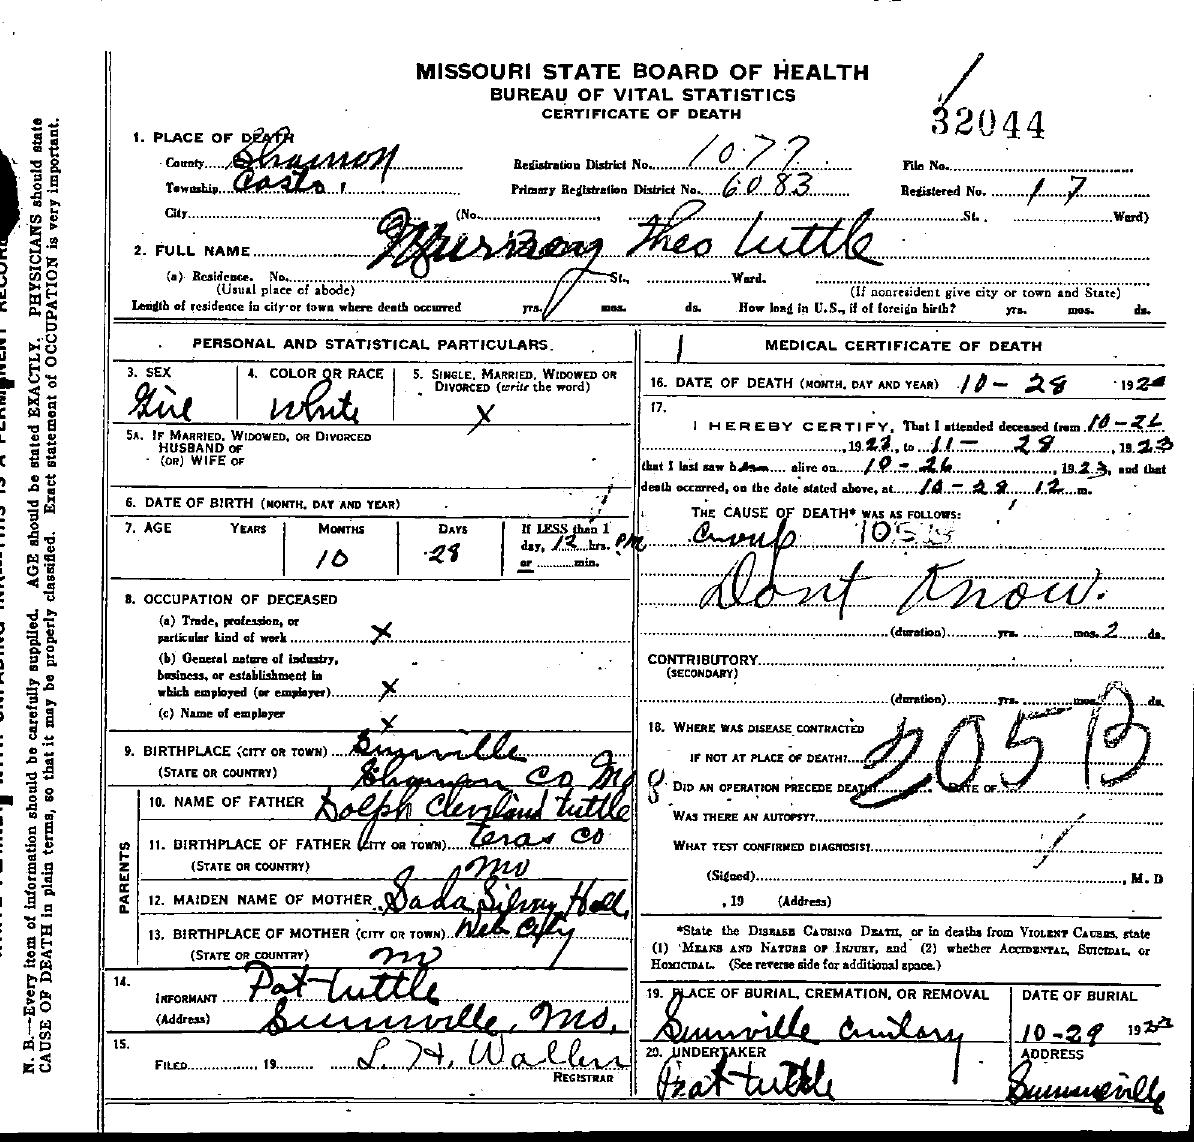 MISSOURI STATE BOARD OF HEALTH
BUREAU OF VITAL STATISTICS
CERTIFICATE OF DEATH
32044
1. PLACE OF DEATH
County Shannon Registration District No. 1077 File No.
Township Primary Registration District No. 6083 Registered No. 17
City (No. St., Ward)
2. FULL NAME Theo Tuttle
(a) Residence. No. St., Ward.
(Usual place of abode) (If nonresident give city or town and State)
Length of residence in city or town where death occurred yrs. mos. ds. How long in U.S., if of foreign birth? yrs. mos. ds.
PERSONAL AND STATISTICAL PARTICULARS.
3. SEX 4. COLOR OR RACE 5. SINGLE, MARRIED, WIDOWED OR
DIVORCED (write the word)
Girl White X
5A. IF MARRIED, WIDOWED, OR DIVORCED
HUSBAND OF
(OR) WIFE OF
6. DATE OF BIRTH (MONTH, DAY AND YEAR)
7. AGE YEARS MONTHS DAYS If LESS than 1
day, 12 hrs. PM
10 28 or min.
8. OCCUPATION OF DECEASED
(a) Trade, profession, or
particular kind of work X
(b) General nature of industry,
business, or establishment in
which employed (or employer) X
(c) Name of employer X
9. BIRTHPLACE (CITY OR TOWN)
(STATE OR COUNTRY) Shannon Co Mo
PARENTS
10. NAME OF FATHER Dolph Cleveland Tuttle
11. BIRTHPLACE OF FATHER (CITY OR TOWN) Texas Co
(STATE OR COUNTRY) Mo
12. MAIDEN NAME OF MOTHER Sada Hall
13. BIRTHPLACE OF MOTHER (CITY OR TOWN) Web City
(STATE OR COUNTRY) Mo
14.
INFORMANT Pat Tuttle
(Address) Summville, Mo.
15.
FILED , 19 L. H. Waller
REGISTRAR
MEDICAL CERTIFICATE OF DEATH
16. DATE OF DEATH (MONTH, DAY AND YEAR) 10-28 192
17.
I HEREBY CERTIFY, That I attended deceased from 10-26
, 1923, to 11-28, 1923
that I last saw h alive on 10-26, 1923, and that
death occurred, on the date stated above, at 10-28 12 m.
THE CAUSE OF DEATH* WAS AS FOLLOWS:
Croup
Dont Know.
(duration) yrs. mos. 2 ds.
CONTRIBUTORY
(SECONDARY)
(duration) yrs. mos. ds.
18. WHERE WAS DISEASE CONTRACTED
IF NOT AT PLACE OF DEATH?
205B
DID AN OPERATION PRECEDE DEATH? DATE OF
WAS THERE AN AUTOPSY?
WHAT TEST CONFIRMED DIAGNOSIS?
(Signed) , M. D
, 19 (Address)
*State the DISEASE CAUSING DEATH, or in deaths from VIOLENT CAUSES, state
(1) MEANS AND NATURE OF INJURY, and (2) whether ACCIDENTAL, SUICIDAL, or
HOMICIDAL. (See reverse side for additional space.)
19. PLACE OF BURIAL, CREMATION, OR REMOVAL DATE OF BURIAL
10-29 192
20. UNDERTAKER ADDRESS
Pat Tuttle Summerville
N. B.—Every item of information should be carefully supplied. AGE should be stated EXACTLY. PHYSICIANS should state
CAUSE OF DEATH in plain terms, so that it may be properly classified. Exact statement of OCCUPATION is very important.